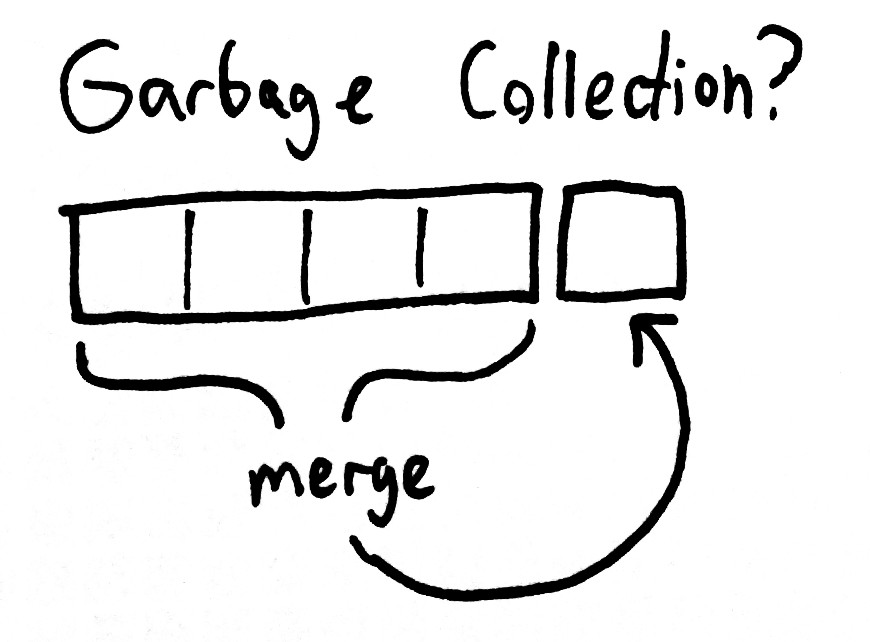 Garbage Collection?
merge